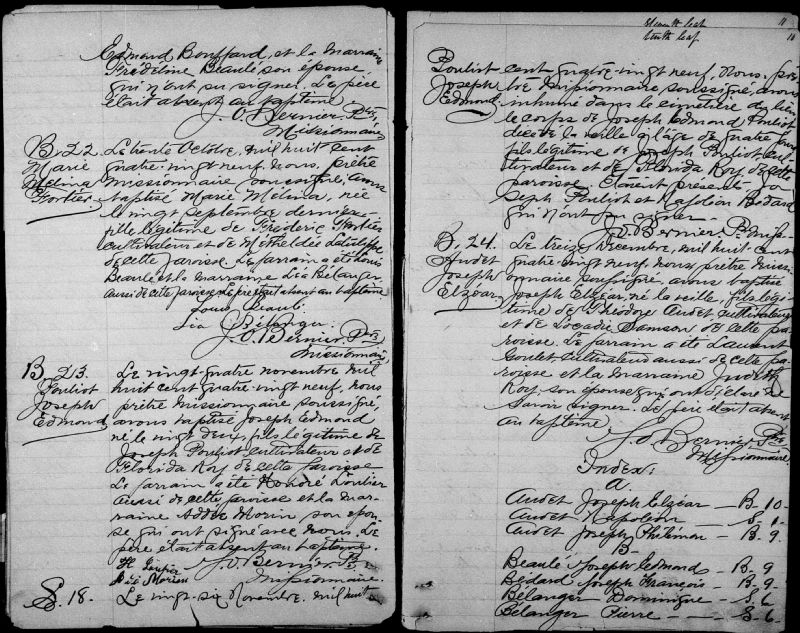 Edmond Bouffard, et la marraine
son épouse
qui n'ont su signer. Le père
était absent au baptême
J. O. Bernier, Ptre
Missionnaire
B. 22.
Marie
Melina
Fortier
Le trente Octobre, mil huit cent
quatre-vingt-neuf, nous, prêtre
missionnaire soussigné, avons
baptisé Marie Melina, née
le vingt septembre dernier,
fille légitime de Fréderic Fortier
cultivateur et de
de cette paroisse. Le parrain a été Louis
Beaulé et la marraine Léa Bélanger
aussi de cette paroisse. Le père était absent au baptême
Louis Beaulé
Léa Bélanger
J. O. Bernier, Ptre
Missionnaire
B. 23.
Pouliot
Joseph
Edmond
Le vingt-quatre novembre mil
huit cent quatre-vingt neuf, nous
prêtre missionnaire soussigné,
avons baptisé Joseph Edmond
né le vingt deux, fils légitime de
Joseph Pouliot cultivateur et de
Florida Roy de cette paroisse
Le parrain a été Honoré
aussi de cette paroisse et la mar-
raine Morin son épou-
se qui ont signé avec nous. Le
père était absent au baptême.
H.
Morin
J. O. Bernier Ptre
Missionnaire.
S. 18.
Le vingt-six Novembre, mil huit
eleventh leaf 11
tenth leaf 10
Pouliot
Joseph
Edmond
cent quatre-vingt neuf, Nous, prê-
tre missionnaire soussigné, avons
inhumé dans le cimetière du lieu
le corps de Joseph Edmond Pouliot
décédé la veille âgé de quatre jours
fils légitime de Joseph Pouliot cul-
tivateur et de Florida Roy de cette
paroisse. Etaient présents Jo-
seph Pouliot et Napoléon Bédard
qui n'ont su signer
J. O. Bernier Ptre Miss.
B. 24.
Audet
Joseph
Elzéar
Le treize Décembre, mil huit cent
quatre-vingt neuf, nous, prêtre missi-
onnaire soussigné, avons baptisé
Joseph Elzéar, né la veille, fils légi-
time de Théodore Audet cultivateur
et de Locadie Samson de cette pa-
roisse. Le parrain a été Laurent
Goulet cultivateur aussi de cette pa-
roisse et la marraine Judith
Roy, son épouse qui ont déclaré ne
savoir signer. Le père était absent
au baptême
J. O. Bernier Ptre
Missionnaire.
Index:
A.
Audet Joseph Elzéar — B. 10
Audet Napoléon — S. 1
Audet Joseph Philemon — B. 9.
B
Beaulé Joseph Edmond — B. 9
Bédard Joseph François — B. 9
Bélanger Dominique — S. 6
Bélanger Pierre — S. 6.